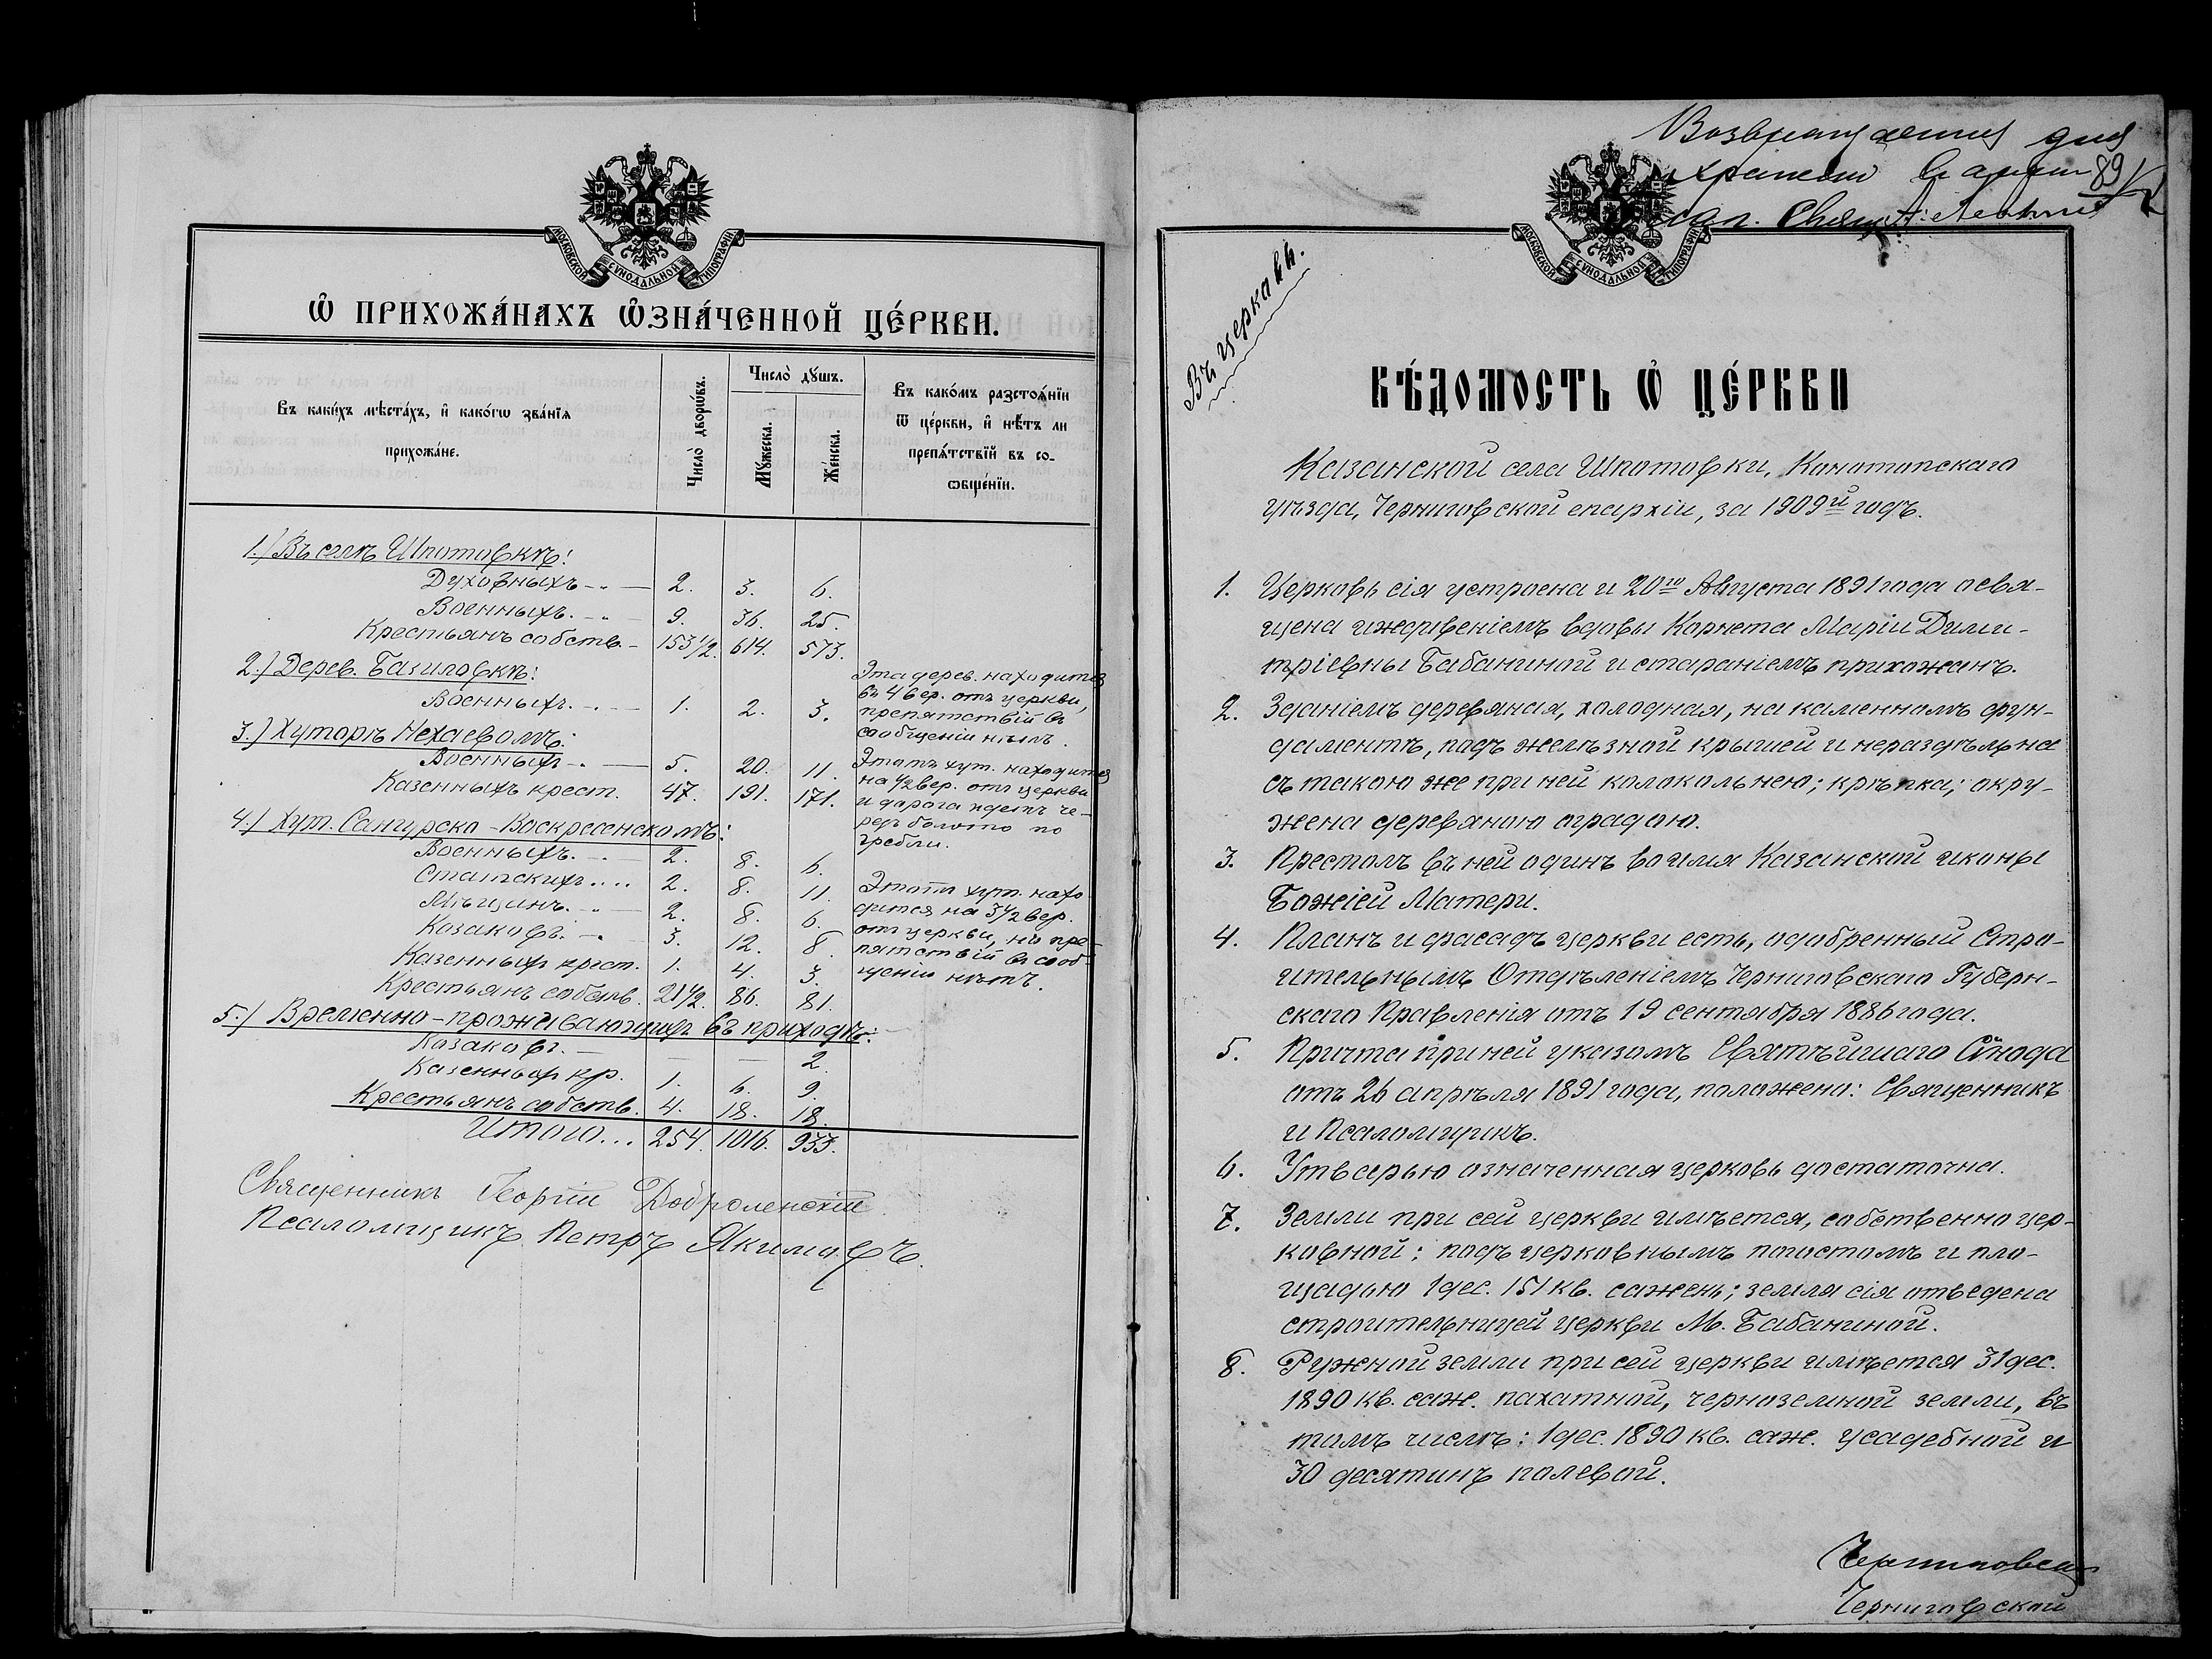 МОСКОВСКОЙ СѴНОДАЛЬНОЙ ТИПОГРАФІИ
Ѡ ПРИХОЖА́НАХЪ Ѡ҆ЗНА́ЧЕННОЙ ЦЕ́РКВИ.
Въ каки́хъ мѣста́хъ, и҆ како́гѡ зва́нїѧ
прихожа́не.
Число̀ дворѡ́въ.
Число̀ дꙋ́шъ.
Мꙋ́жеска.
Же́нска.
Въ како́мъ разстоѧ́нїи
ѿ це́ркви, и҆ нѣ́тъ ли
препѧ́тствїй въ со-
ѻбще́нїи.
1.) Въ селѣ Шпотовкѣ:
Духовныхъ - 2. 3. 6.
Военныхъ. - 9. 36. 25.
Крестьянъ собств. - 153 1/2. 614. 573.
2.) Дерев. Базиловкѣ:
Военныхъ. - 1. 2. 3.
Эта дерев. находится
въ 4 вер. отъ церкви,
препятствій въ
сообщеніи нѣтъ.
3.) Хуторѣ Нехаевомъ:
Военныхъ - 5. 20. 11.
Казенныхъ крест. 47. 191. 171.
Этотъ хут. находится
на 1/2 вер. отъ церкви
и дорога идетъ че-
резъ болото по
гребли.
4.) Хут. Сангурско-Воскресенскомъ:
Военныхъ. - 2. 8. 6.
Статскихъ.... 2. 8. 11.
Мѣщанъ. - 2. 8. 6.
Козаковъ. - 3. 12. 8.
Казенныхъ крест. 1. 4. 3.
Крестьянъ собств. 21 1/2. 86. 81.
Этотъ хут. нахо
дится на 3 1/2 вер.
отъ церкви, но пре-
пятствій въ сооб-
щеніи нѣтъ.
5.) Временно-проживающихъ въ приходѣ:
Козаковъ. - — — 2.
Казенныхъ кр. 1. 6. 9.
Крестьянъ собств. 4. 18. 18.
Итого... 254. 1016. 933.
Священникъ Георгій Доброленскій
Псаломщикъ Петръ Якимовъ.
Возвращается для
храненія
89
Въ церковь.
МОСКОВСКОЙ СѴНОДАЛЬНОЙ ТИПОГРАФІИ
ВѢ́ДОМОСТЬ Ѡ҆ ЦЕ́РКВИ
Казанской села Шпотовки, Конотопскаго
уѣзда, Черниговской епархіи, за 1909й годъ.
1. Церковь сія устроена и 20го Августа 1891 года освя-
щена иждивеніемъ вдовы Корнета Маріи Дими-
тріевны Бабаниной и стараніемъ прихожанъ.
2. Зданіемъ деревяная, холодная, на каменномъ фун-
даментѣ, подъ желѣзной крышей и нераздѣльна
съ такою же при ней колокольнею; крѣпка; окру-
жена деревяною оградою.
3. Престолъ въ ней одинъ во имя Казанской иконы
Божіей Матери.
4. Планъ и фасадъ церкви есть, одобренный Стро-
ительнымъ Отдѣленіемъ Черниговскаго Губерн-
скаго Правленія отъ 19 сентября 1886 года.
5. Причта при ней указомъ Святѣйшаго Сѵнода
отъ 26 апрѣля 1891 года, положено: Священникъ
и Псаломщикъ.
6. Утварью означенная церковь достаточна.
7. Земли при сей церкви имѣется, собственно цер-
ковной: подъ церковнымъ погостомъ и пло-
щадью 1 дес. 151 кв. сажень; земля сія отведена
строительницей церкви М. Бабаниной.
8. Ружной земли при сей церкви имѣется 31 дес.
1890 кв. саж. пахатной, черноземной земли, въ
томъ числѣ: 1 дес. 1890 кв. саж. усадебной и
30 десятинъ полевой.
Черниговской